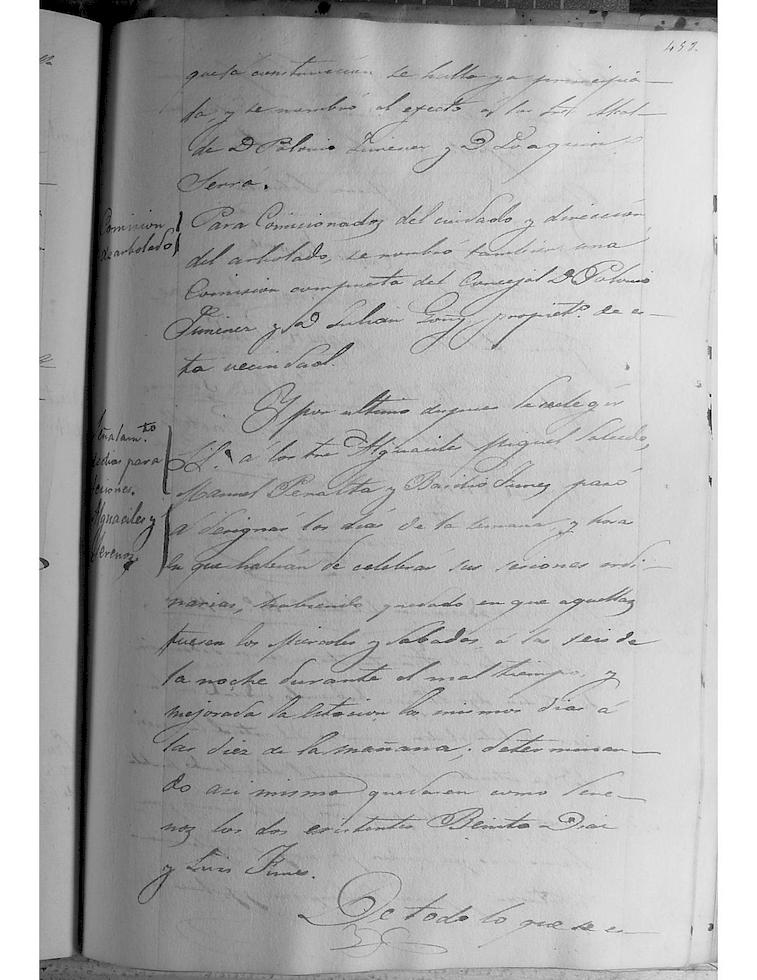 que la construccion se halla ya principia-
da, y se nombró al efecto a los
de D. Polonio Jimenez y D. Joaquin
Serra.
Comision
de arbolado
Para Comisionados del cuidado y direccion
del arbolado, se nombró tambien una
Comision compuesta del Concejal D. Polonio
Jimenez y D. Julian Gomz, propiet.º de es-
ta vecindad.
Y por ultimo despues de
dias para
sesiones.
Alguaciles y
Serenos
S.S.ª a los tres Alguaciles Miguel Salcedo,
Manuel Peralta y Basilio pasó
á designar los dias de la semana, y hora
en que habrán de celebrar sus sesiones ordi-
narias, habiendo quedado en que aquellas
fuesen los Miercoles y Sabados, á las seis de
la noche durante el mal tiempo, y
mejorada la estacion los mismos dias á
las diez de la mañana; determinan-
do asi mismo quedasen como Sere-
nos los dos existentes Benito Diaz
y Luis
De todo lo que se e-